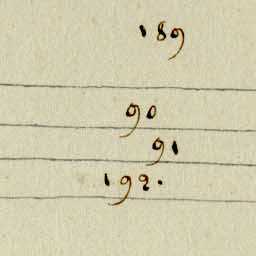 189
90
91
192.